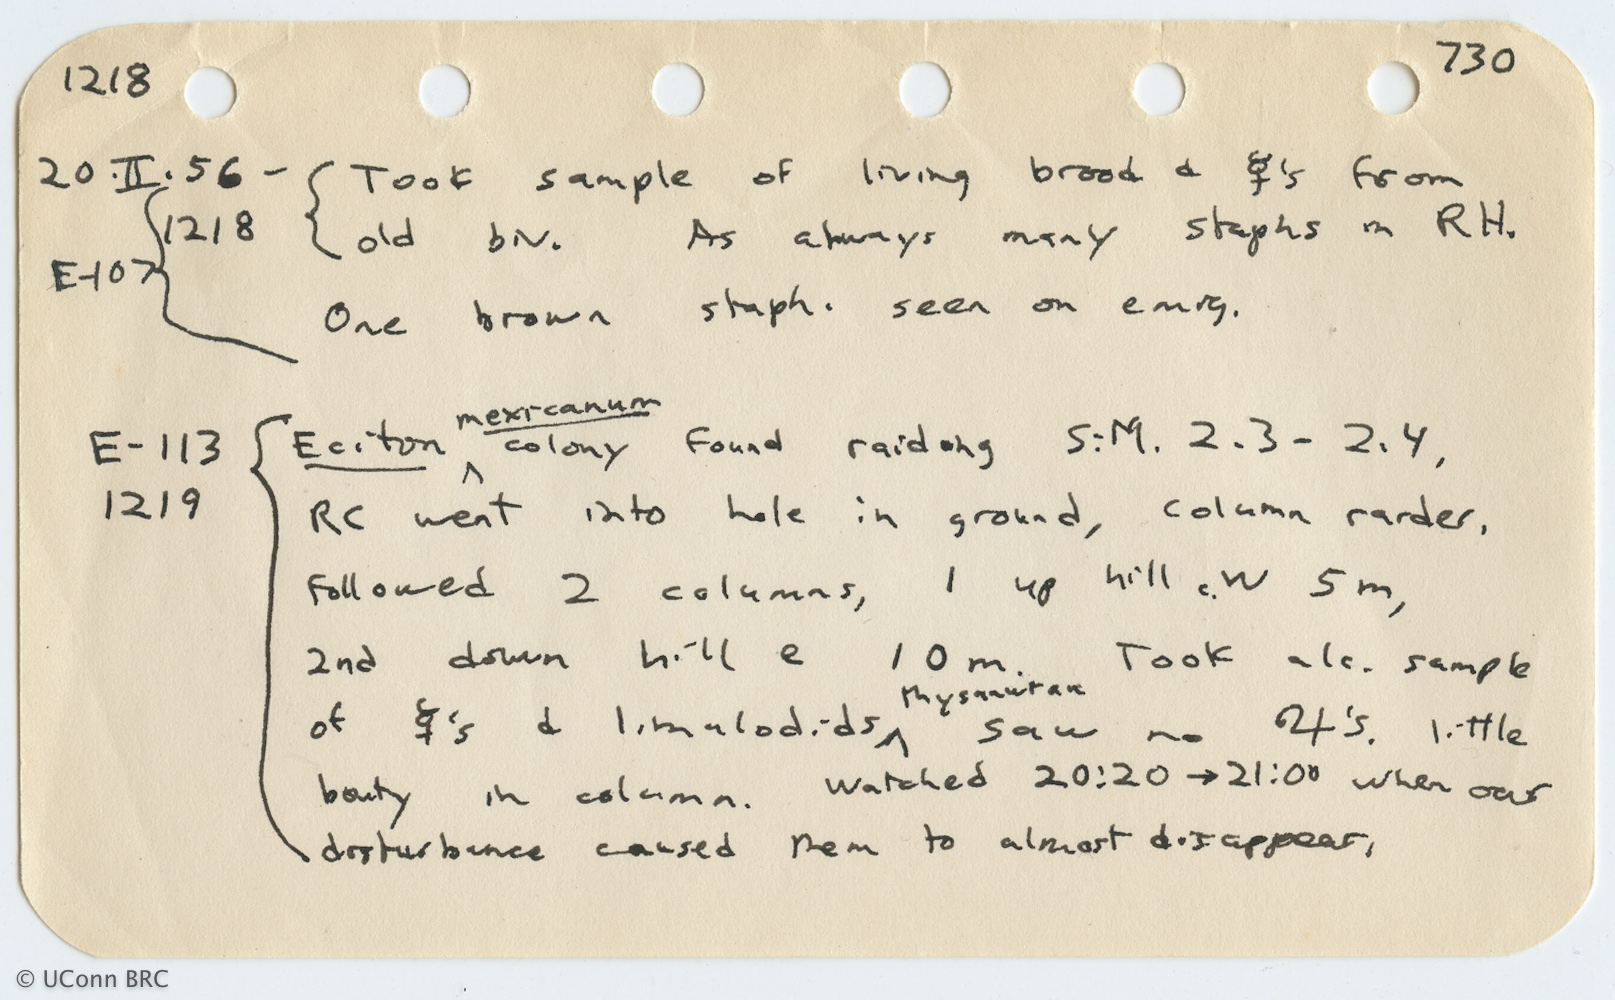 1218 730
20.II.56- Took sample of living brood & ☿'s from
1218 old biv. As always many staphs in RH.
E-107
One brown staph. seen on emig.
mexicanum
E-113 Eciton ^ colony found raiding S.M. 2.3-2.4,
1219 RC went into hole in ground, column raider.
Followed 2 columns, 1 up hill c.W 5m,
2nd down hill e 10m. Took alc. sample
thysanuran
of ☿'s & limulodids ^ saw no ♃'s. little
booty in column. Watched 20:20 → 21:00 when our
disturbance caused them to almost disappear.
© UConn BRC